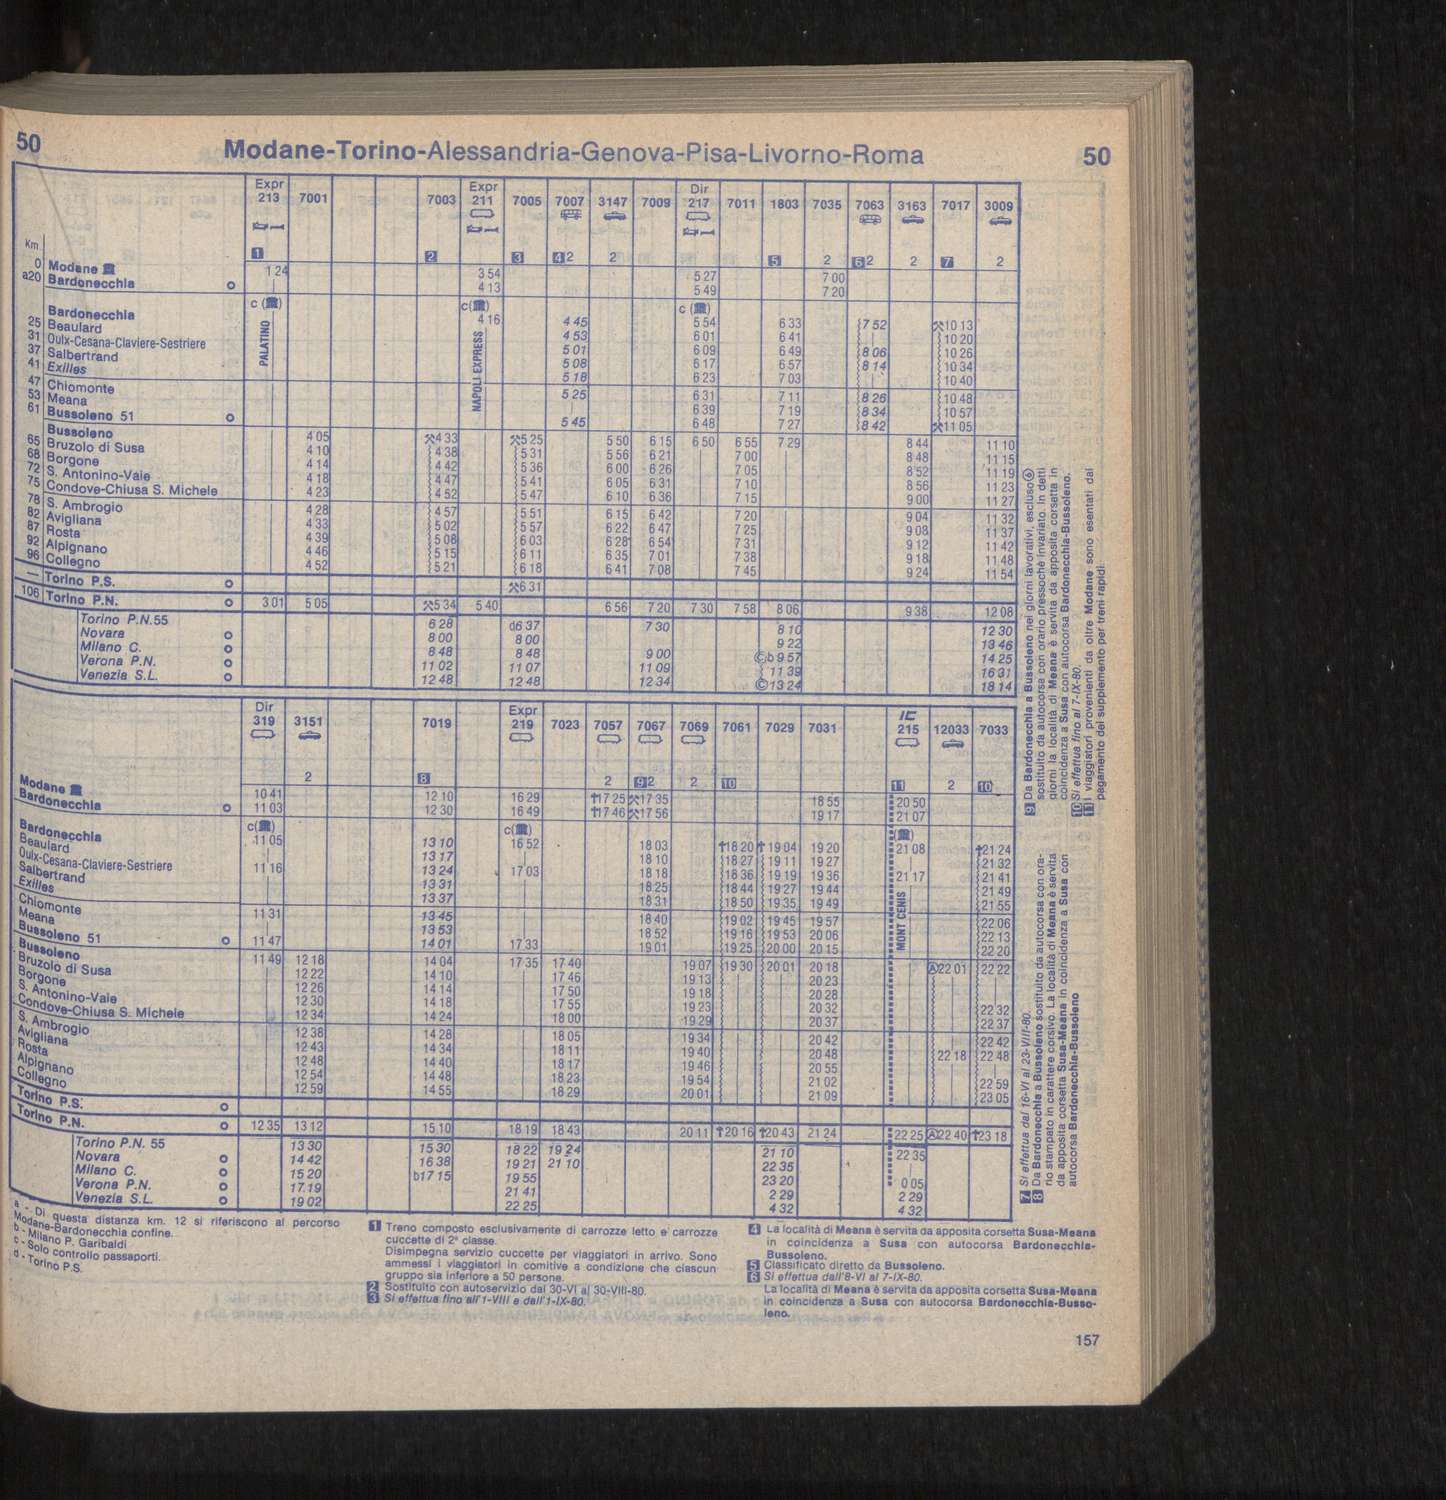 50
Modane-Torino-Alessandria-Genova-Pisa-Livorno-Roma
50
Expr 213 7001 7003 Expr 211 7005 7007 3147 7009 Dir 217 7011 1803 7035 7063 3163 7017 3009
Km 1 2 3 4 2 2 5 2 6 2 2 7 2
0 Modane 1 24 3 54 5 27 7 00
a20 Bardonecchia o 4 13 5 49 7 20
c ( ) c( ) c ( )
PALATINO
NAPOLI EXPRESS
Bardonecchia 4 16 4 45 5 54 6 33 7 52 10 13
25 Beaulard 4 53 6 01 6 41 10 20
31 Oulx-Cesana-Claviere-Sestriere 5 01 6 09 6 49 8 06 10 26
37 Salbertrand 5 08 6 17 6 57 8 14 10 34
41 Exilles 5 18 6 23 7 03 10 40
47 Chiomonte 5 25 6 31 7 11 8 26 10 48
53 Meana 6 39 7 19 8 34 10 57
61 Bussoleno 51 o 5 45 6 48 7 27 8 42 11 05
Bussoleno 4 05 4 33 5 25 5 50 6 15 6 50 6 55 7 29 8 44 11 10
65 Bruzolo di Susa 4 10 4 38 5 31 5 56 6 21 7 00 8 48 11 15
68 Borgone 4 14 4 42 5 36 6 00 6 26 7 05 8 52 11 19
72 S. Antonino-Vaie 4 18 4 47 5 41 6 05 6 31 7 10 8 56 11 23
75 Condove-Chiusa S. Michele 4 23 4 52 5 47 6 10 6 36 7 15 9 00 11 27
78 S. Ambrogio 4 28 4 57 5 51 6 15 6 42 7 20 9 04 11 32
82 Avigliana 4 33 5 02 5 57 6 22 6 47 7 25 9 08 11 37
87 Rosta 4 39 5 08 6 03 6 28 6 54 7 31 9 12 11 42
92 Alpignano 4 46 5 15 6 11 6 35 7 01 7 38 9 18 11 48
96 Collegno 4 52 5 21 6 18 6 41 7 08 7 45 9 24 11 54
— Torino P.S. o 6 31
106 Torino P.N. o 3 01 5 05 5 34 5 40 6 56 7 20 7 30 7 58 8 06 9 38 12 08
Torino P.N.55 6 28 d6 37 7 30 8 10 12 30
Novara o 8 00 8 00 9 22 13 46
Milano C. o 8 48 8 48 9 00 ©b9 57 14 25
Verona P.N. o 11 02 11 07 11 09 11 39 16 31
Venezia S.L. o 12 48 12 48 12 34 ©13 24 18 14
Dir 319 3151 7019 Expr 219 7023 7057 7067 7069 7061 7029 7031 IC 215 12033 7033
2 8 2 9 2 2 10 11 2 10
Modane 10 41 12 10 16 29 †17 25 17 35 18 55 20 50
Bardonecchia o 11 03 12 30 16 49 †17 46 17 56 19 17 21 07
c( ) c( ) ( )
MONT CENIS
Bardonecchia 11 05 13 10 16 52 18 03 †18 20 †19 04 19 20 21 08 †21 24
Beaulard 13 17 18 10 18 27 19 11 19 27 21 32
Oulx-Cesana-Claviere-Sestriere 11 16 13 24 17 03 18 18 18 36 19 19 19 36 21 17 21 41
Salbertrand 13 31 18 25 18 44 19 27 19 44 21 49
Exilles 13 37 18 31 18 50 19 35 19 49 21 55
Chiomonte 11 31 13 45 18 40 19 02 19 45 19 57 22 06
Meana 13 53 18 52 19 16 19 53 20 06 22 13
Bussoleno 51 o 11 47 14 01 17 33 19 01 19 25 20 00 20 15 22 20
Bussoleno 11 49 12 18 14 04 17 35 17 40 19 07 19 30 20 01 20 18 Ⓐ22 01 22 22
Bruzolo di Susa 12 22 14 10 17 46 19 13 20 23
Borgone 12 26 14 14 17 50 19 18 20 28
S. Antonino-Vaie 12 30 14 18 17 55 19 23 20 32 22 32
Condove-Chiusa S. Michele 12 34 14 24 18 00 19 29 20 37 22 37
S. Ambrogio 12 38 14 28 18 05 19 34 20 42 22 42
Avigliana 12 43 14 34 18 11 19 40 20 48 22 18 22 48
Rosta 12 48 14 40 18 17 19 46 20 55
Alpignano 12 54 14 48 18 23 19 54 21 02 22 59
Collegno 12 59 14 55 18 29 20 01 21 09 23 05
Torino P.S. o
Torino P.N. o 12 35 13 12 15 10 18 19 18 43 20 11 †20 16 †20 43 21 24 22 25 Ⓐ22 40 †23 18
Torino P.N. 55 13 30 15 30 18 22 19 24 21 10 22 35
Novara o 14 42 16 38 19 21 21 10 22 35
Milano C. o 15 20 b17 15 19 55 23 20 0 05
Verona P.N. o 17 19 21 41 2 29 2 29
Venezia S.L. o 19 02 22 25 4 32 4 32
a - Di questa distanza km. 12 si riferiscono al percorso
Modane-Bardonecchia confine.
b - Milano P. Garibaldi
c - Solo controllo passaporti.
d - Torino P.S.
1 Treno composto esclusivamente di carrozze letto e carrozze
cuccette di 2ª classe.
Disimpegna servizio cuccette per viaggiatori in arrivo. Sono
ammessi i viaggiatori in comitive a condizione che ciascun
gruppo sia inferiore a 50 persone.
2 Sostituito con autoservizio dal 30-VI al 30-VIII-80.
3 Si effettua fino all'1-VIII e dall'1-IX-80.
4 La località di Meana è servita da apposita corsetta Susa-Meana
in coincidenza a Susa con autocorsa Bardonecchia-
Bussoleno.
5 Classificato diretto da Bussoleno.
6 Si effettua dall'8-VI al 7-IX-80.
La località di Meana è servita da apposita corsetta Susa-Meana
in coincidenza a Susa con autocorsa Bardonecchia-Busso-
leno.
7 Si effettua dal 16-VI al 23-VIII-80.
8 Da Bardonecchia a Bussoleno sostituito da autocorsa con ora-
rio stampato in carattere corsivo. La località di Meana è servita
da apposita corsetta Susa-Meana in coincidenza a Susa con
autocorsa Bardonecchia-Bussoleno
9 Da Bardonecchia a Bussoleno nei giorni lavorativi, escluso⑥
sostituito da autocorsa con orario pressochè invariato. In detti
giorni la località di Meana è servita da apposita corsetta in
coincidenza a Susa con autocorsa Bardonecchia-Bussoleno.
10 Si effettua fino al 7-IX-80.
11 I viaggiatori provenienti da oltre Modane sono esentati dal
pagamento del supplemento per treni rapidi.
157